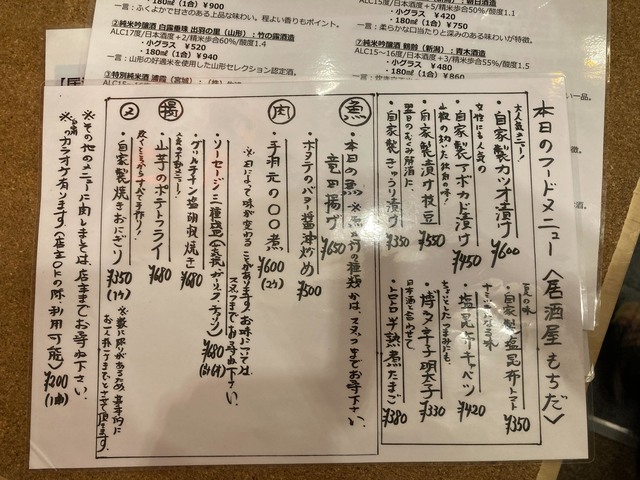 ・180㎖(1合) ¥900
一言:ふくよかで甘さのある上品な味わい。程よい香りもポイント。
②純米吟醸酒 白露垂珠 出羽の里(山形):竹の露酒造
ALC17度/日本酒度+2/精米歩合60%/酸度1.4
・小グラス ¥520
・180㎖(1合) ¥940
一言:山形の好適米を使用した山形セレクション認定酒。
③特別純米酒 浦霞(宮城)
・小グラス ¥420
・180㎖(1合) ¥750
一言:柔らかな口当たりと深みのある味わいが特徴。
⑦純米吟醸酒 鶴齢(新潟):青木酒造
ALC15～16度/日本酒度+3/精米歩合55%/酸度1.5
・小グラス ¥480
・180㎖(1合) ¥860
本日のフードメニュー〈居酒屋もちだ〉
大人気メニュー!
・自家製カツオ漬け ¥600
女性にも人気の
・自家製アボカド漬け ¥450
・自家製漬け枝豆 ¥550
翌日のむくみ解消に
・自家製きゅうり漬け ¥350
夏の味
・自家製塩昆布トマト ¥350
・塩昆布キャベツ ¥420
ちょいとしたつまみにも、
・博多辛子明太子 ¥330
日本酒と合わせて
半熟煮たまご ¥380
魚
・本日の魚 ※魚の種類は、スタッフまでお尋ね下さい。
竜田揚げ ¥650
・ホタテのバター醤油炒め ¥500
肉
・手羽元の〇〇煮 ¥600(2ヶ)
※日によって味が変わることがあります。お味については、
スタッフまでお尋ね下さい。
揚
・ソーセージ三種盛 ¥680
¥680
・山芋のポテトフライ ¥480
〆
・自家製焼きおにぎり ¥350(1ヶ)
※数に限りがあるため、基本的に
お一人前一つまでとさせて頂きます。
※その他のメニューに関しましては、店主までお尋ね下さい。
※カラオケ有ります(店主OKの際、利用可能)¥200(1曲)